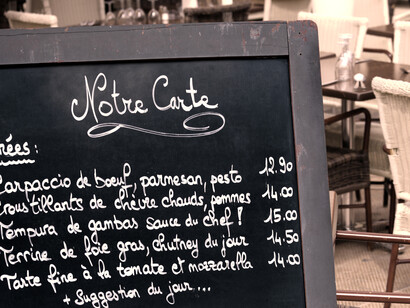 Notre Carte
rées :
Carpaccio de boeuf, parmesan, pesto 12.90
Croustillants de chèvre chauds, pommes 14.00
Tempura de gambas sauce du chef ! 15.00
Terrine de foie gras, chutney du jour 14.50
Tarte fine à la tomate et mozzarella 14.00
+ Suggestion du jour...